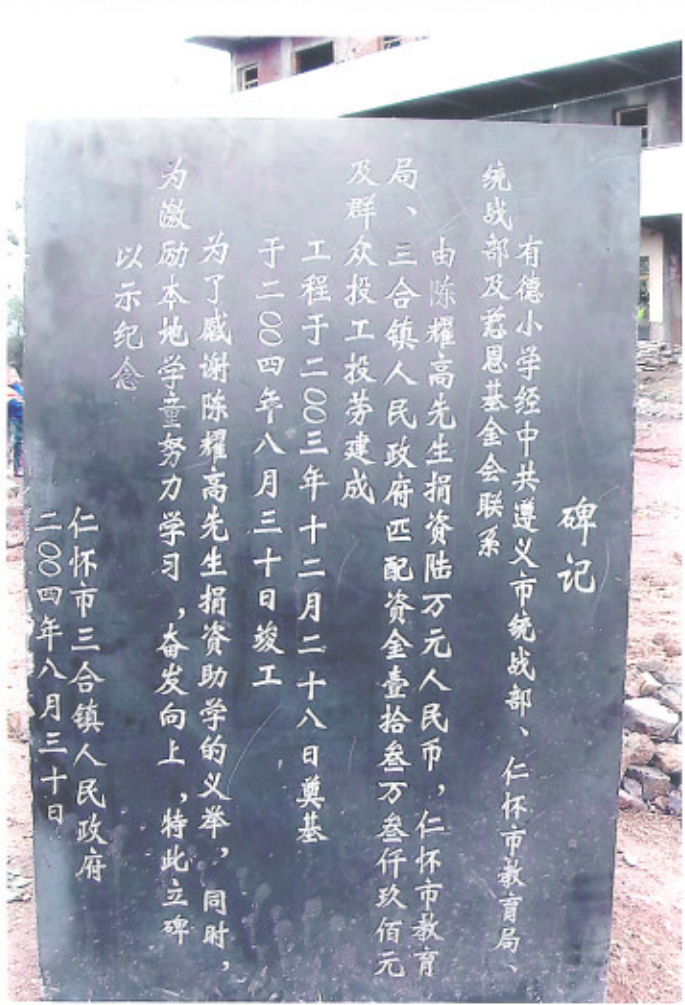 碑记
有德小学经中共遵义市统战部、仁怀市教育局、
统战部及慈恩基金会联系
由陈耀高先生捐资陆万元人民币，仁怀市教育
局、三合镇人民政府匹配资金壹拾叁万叁仟玖佰元
及群众投工投劳建成
工程于二〇〇三年十二月二十八日奠基
于二〇〇四年八月三十日竣工
为了感谢陈耀高先生捐资助学的义举，同时，
为激励本地学童努力学习，奋发向上，特此立碑
以示纪念
仁怀市三合镇人民政府
二〇〇四年八月三十日